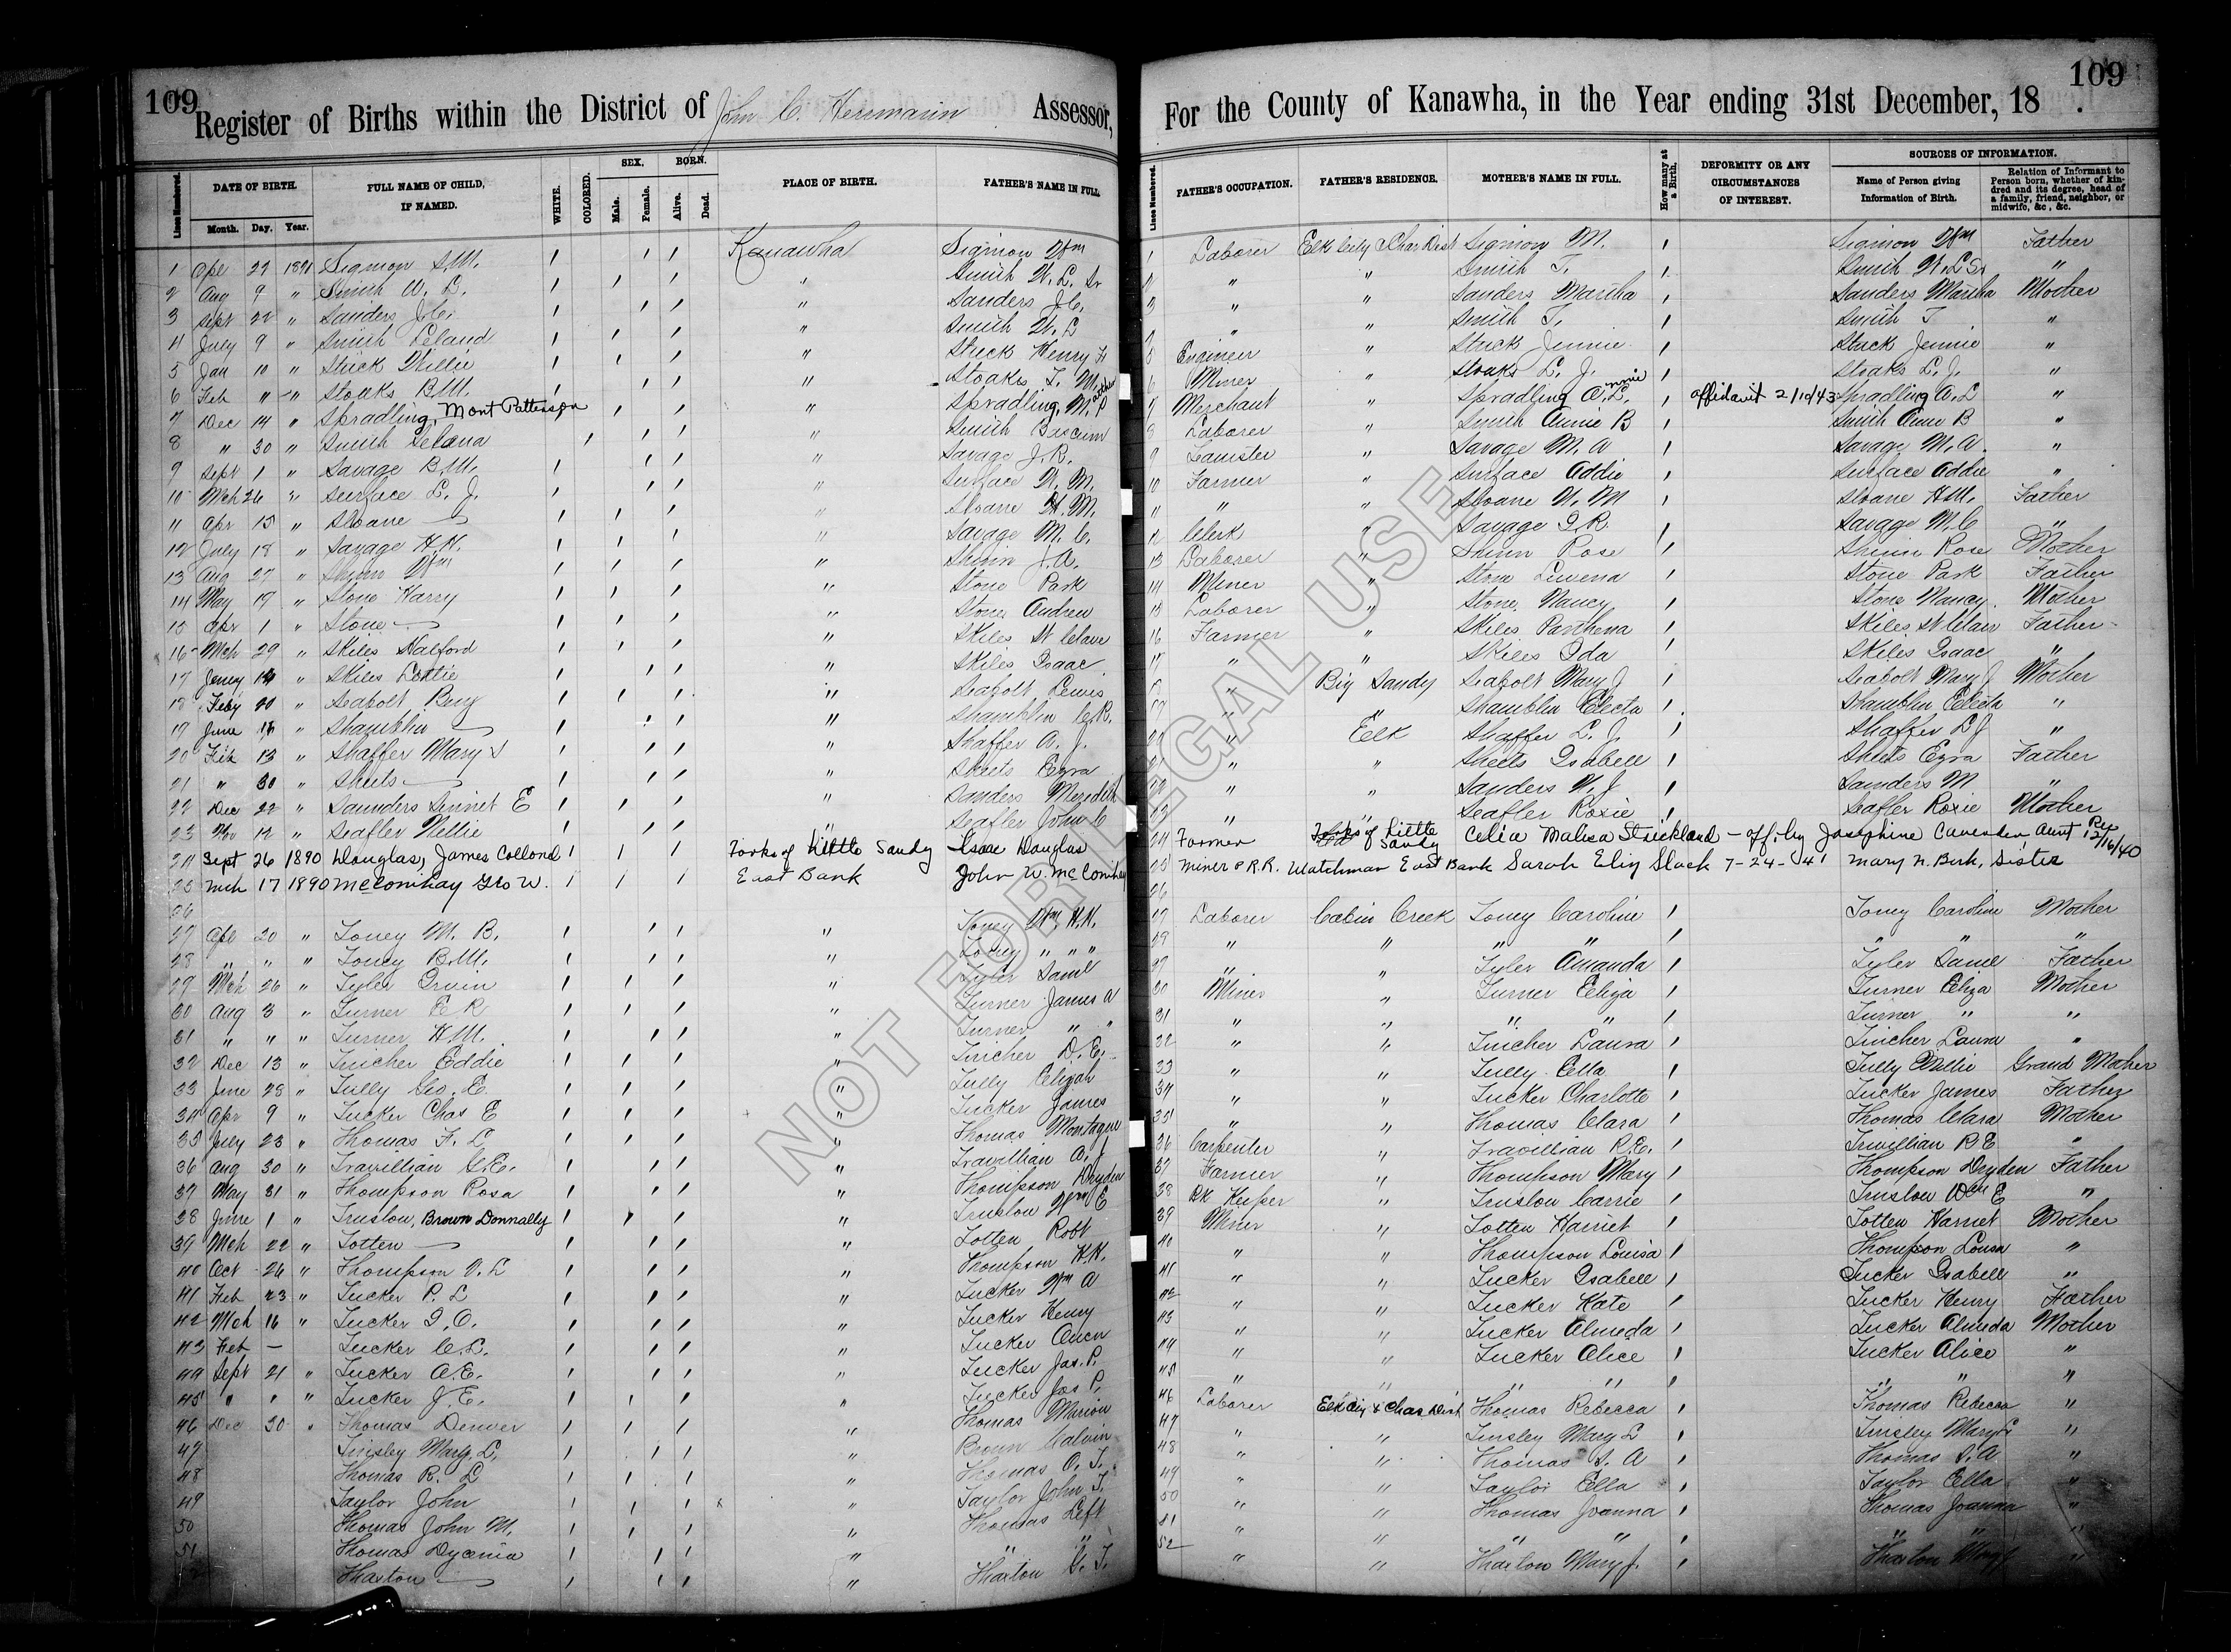 109
Register of Births within the District of John C. Herrmann Assessor,
Lines Numbered. DATE OF BIRTH. FULL NAME OF CHILD, IF NAMED. WHITE. COLORED. SEX. BORN. PLACE OF BIRTH. FATHER'S NAME IN FULL
Month. Day. Year. Male. Female. Alive. Dead.
1 Apl 27 1891 Sigmon S.M. Kanawha Sigmon Wm
2 Aug 9 " Smith W. L. " Smith W. L. Sr
3 Sept 22 " Sanders J.C. " Sanders J.C.
4 July 9 " Smith Leland " Smith W. L
5 Jan 10 " Stuck Willie " Stuck Henry
6 Feb " " Stoaks B.M. " Stoaks T. M.
7 Dec 14 " Spradling, Mont Pattenson " Spradling, M. P
8 " 30 " Smith Selena " Smith Bascum
9 Sept 1 " Savage B.M. " Savage J.R.
10 Mch 26 " Surface L. J. " Surface W. M.
11 Apr 15 " Sloane " Sloane H.M.
12 July 18 " Savage H.H. " Savage M. C.
13 Aug 27 " Shinn Wm " Shinn J.A.
14 May 19 " Stone Harry " Stone Park
15 Apr 1 " Stone " Stone Andrew
16 Mch 29 " Skiles Halford " Skiles St Clair
17 Jany 14 " Skiles Lottie " Skiles Isaac
18 Feby 20 " Seabolt Benj " Seabolt Lewis
19 June 16 " Shamblin " Shamblin C.R.
20 Feb 13 " Shaffer Mary " Shaffer A. J.
21 " 30 " Sheets " Sheets Ezra
22 Dec 22 " Saunders Sinnet E " Sanders Meredith
23 Nov 12 " Seafler Nellie " Seafler John C
24 Sept 26 1890 Douglas, James Collond Forks of Little Sandy Isaac Douglas
25 Mch 17 1890 McConihay Geo W. East Bank John W. McConihay
26
27 Apl 20 " Toney M. B. " Toney Wm. H.H.
28 " " " Toney B.M. " Toney " " "
29 Mch 26 " Tyler Irvin " Tyler Saml
30 Aug 3 " Turner E R " Turner James A
31 " " " Turner H.M. " Turner " "
32 Dec 13 " Tincher Eddie " Tincher D. E.
33 June 28 " Tully Geo. E. " Tully Elijah
34 Apr 9 " Tucker Chas E " Tucker James
35 July 23 " Thomas F. L " Thomas Montague
36 Aug 30 " Travillian G.E. " Travillian A. J
37 May 31 " Thompson Rosa " Thompson Dryden
38 June 1 " Truslow, Brown Donnally " Truslow Wm E
39 Mch 22 " Totten " Totten Robt
40 Oct 26 " Thompson V. L " Thompson H.H.
41 Feb 23 " Tucker P. L " Tucker Wm A
42 Mch 16 " Tucker I. O. " Tucker Henry
43 Feb — Tucker C.L. " Tucker Owen
44 Sept 21 " Tucker A.E. " Tucker Jas. P.
45 " " " Tucker J. E. " Tucker Jas P.
46 Dec 30 " Thomas Denver " Thomas Marion
47 Tinsley Mary L. " Brown Calvin
48 Thomas R. L " Thomas O. T.
49 Taylor John " Taylor John T.
50 Thomas John M. " Thomas Left
51 Thomas Dycenia " " "
Thaxton " Thaxton G. T.
109
For the County of Kanawha, in the Year ending 31st December, 18 .
Lines Numbered. FATHER'S OCCUPATION. FATHER'S RESIDENCE. MOTHER'S NAME IN FULL. How many at a Birth. DEFORMITY OR ANY CIRCUMSTANCES OF INTEREST. SOURCES OF INFORMATION.
Name of Person giving Information of Birth. Relation of Informant to Person born, whether of kindred and its degree, head of a family, friend, neighbor, or midwife, &c., &c.
1 Laborer Elk City & Chas Dist Sigmon M. Sigmon Wm Father
2 " " Smith T. Smith W. L Sr "
3 " " Sanders Martha Sanders Martha Mother
" " Smith T. Smith T "
5 Engineer " Stuck Jennie Stuck Jennie "
6 Miner " Stoaks L. J. Stoaks L. J. "
7 Merchant " Spradling Annie L. affidavit 2/10/43 Spradling A. L "
8 Laborer " Smith Annie B Smith Annie B "
9 Teamster " Savage M. A Savage M. A. "
10 Farmer " Surface Addie Surface Addie "
11 " " Sloane N. M Sloane H.M. Father
12 Clerk " Savage I. R. Savage M. C "
13 Laborer " Shinn Rose Shinn Rose Mother
14 Miner " Stone Luvena Stone Park Father
15 Laborer " Stone Nancy Stone Nancy Mother
16 Farmer " Skiles Parthena Skiles St Clair Father
17 " " Skiles Ida Skiles Isaac "
18 " Big Sandy Seabolt Mary J Seabolt Mary J Mother
19 " " Shamblin Electa Shamblin Electa "
20 " Elk Shaffer L. J. Shaffer L J "
21 " " Sheets Isabell Sheets Ezra Father
22 " " Sanders N. J Saunders M "
23 " " Seafler Roxie Seafler Roxie Mother
24 Farmer Forks of Little Sandy Celia Malisa Strickland – aff. by Josephine Cavender Aunt Rec 12/16/40
25 Miner & R.R. Watchman East Bank Sarah Eliz Slack 7-24-41 Mary N. Birk, Sister
26
27 Laborer Cabin Creek Toney Caroline Toney Caroline Mother
" " " " " " "
29 " " Tyler Amanda Tyler Saml Father
30 Miner " Turner Eliza Turner Eliza Mother
31 " " " " Turner " "
32 " " Tincher Laura Tincher Laura "
33 " " Tully Ella Tully Millie Grand Mother
34 " " Tucker Charlotte Tucker James Father
35 " " Thomas Clara Thomas Clara Mother
36 Carpenter " Travillian R.E. Trivillian R E "
37 Farmer " Thompson Mary Thompson Dryden Father
38 Bk Keeper " Truslow Carrie Truslow Wm E "
39 Miner " Totten Harriet Totten Harriet Mother
40 " " Thompson Louisa Thompson Louisa "
41 " " Tucker Isabell Tucker Isabell "
42 " " Tucker Kate Tucker Henry Father
43 " " Tucker Almeda Tucker Almeda Mother
44 " " Tucker Alice Tucker Alice "
45 " " " " " " "
46 Laborer Elk City & Chas Dist Thomas Rebecca Thomas Rebecca "
47 " " Tinsley Mary L Tinsley Mary L "
48 " " Thomas S. A Thomas S. A "
49 " " Taylor Ella Taylor Ella "
50 " " Thomas Joanna Thomas Joanna "
51 " " " " " " "
52 " " Thaxton Mary J. Thaxton Mary J "
NOT FOR LEGAL USE